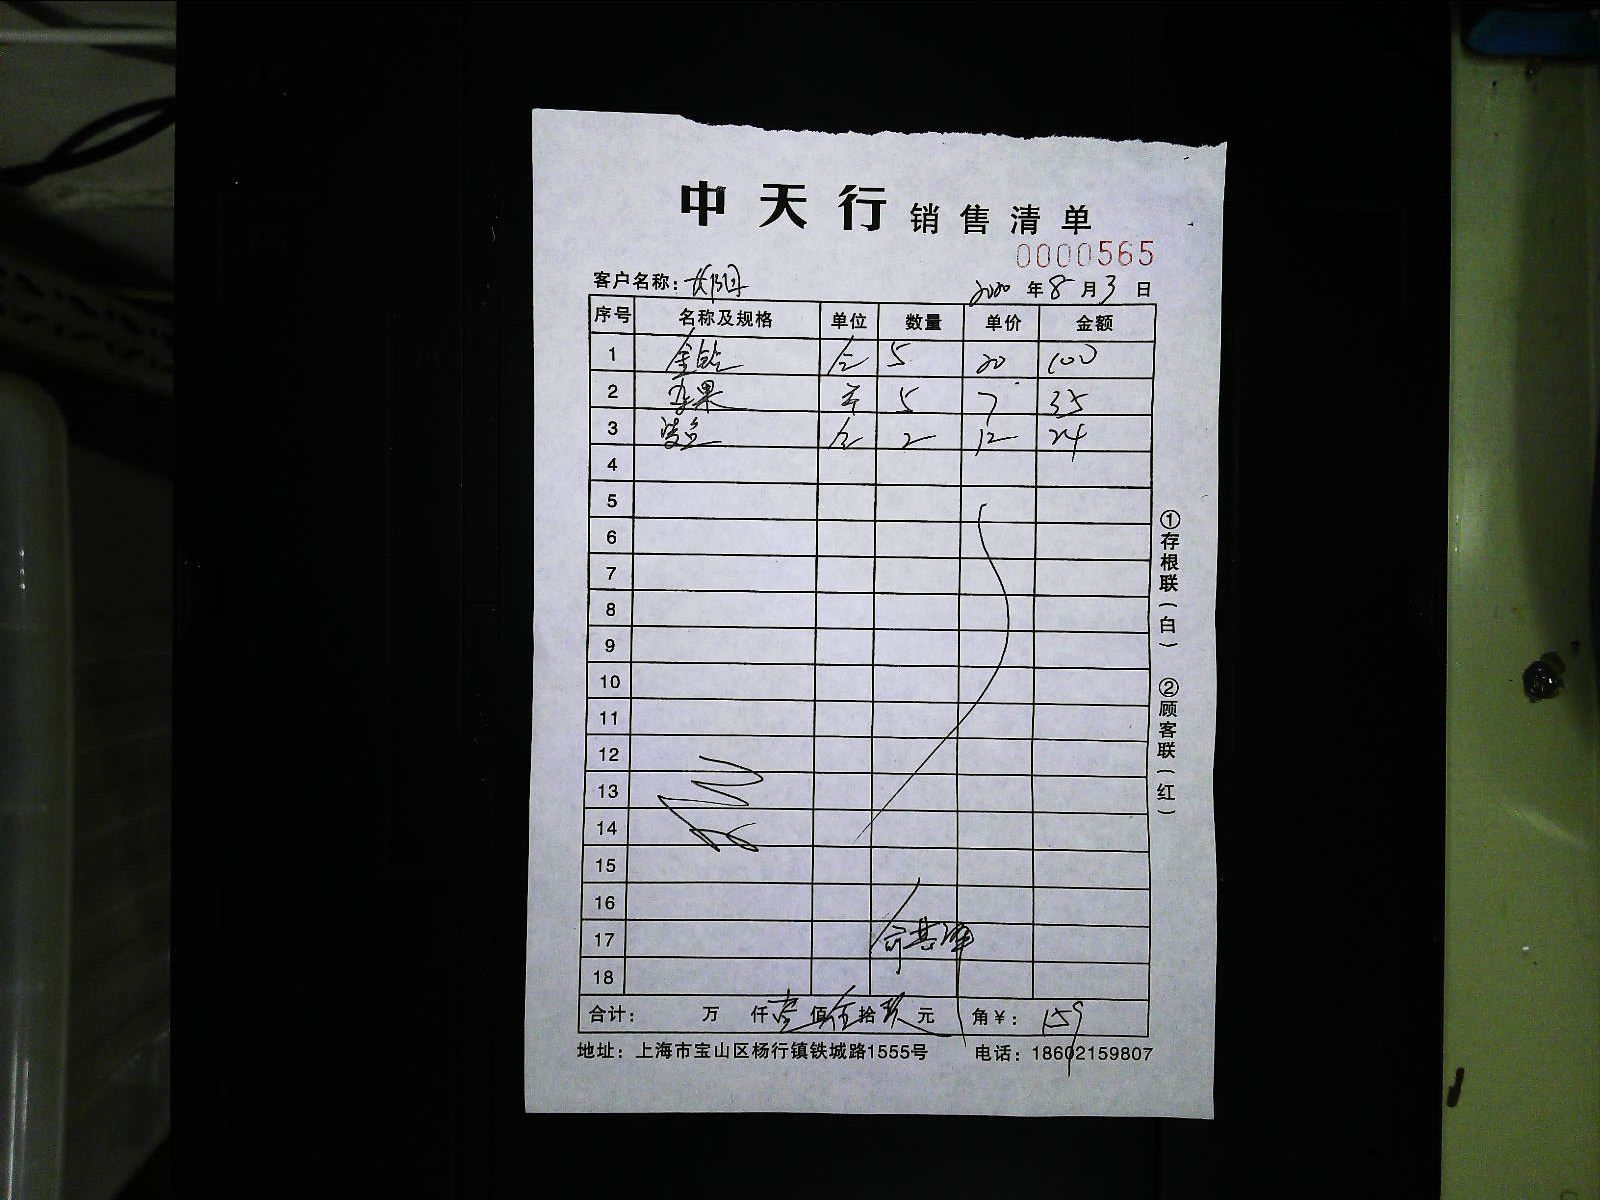 中天行销售清单
0000565
客户名称：
2020年8月3日
序号 名称及规格 单位 数量 单价 金额
1 5 20 100
2 杂果 5 7 35
3 2 12 24
4
5
6
7
8
9
10
11
12
13
14
15
16
17
18
合计： 万 仟壹佰伍拾玖元 角¥： 159
地址：上海市宝山区杨行镇铁城路1555号 电话：18602159807
①存根联（白）
②顾客联（红）